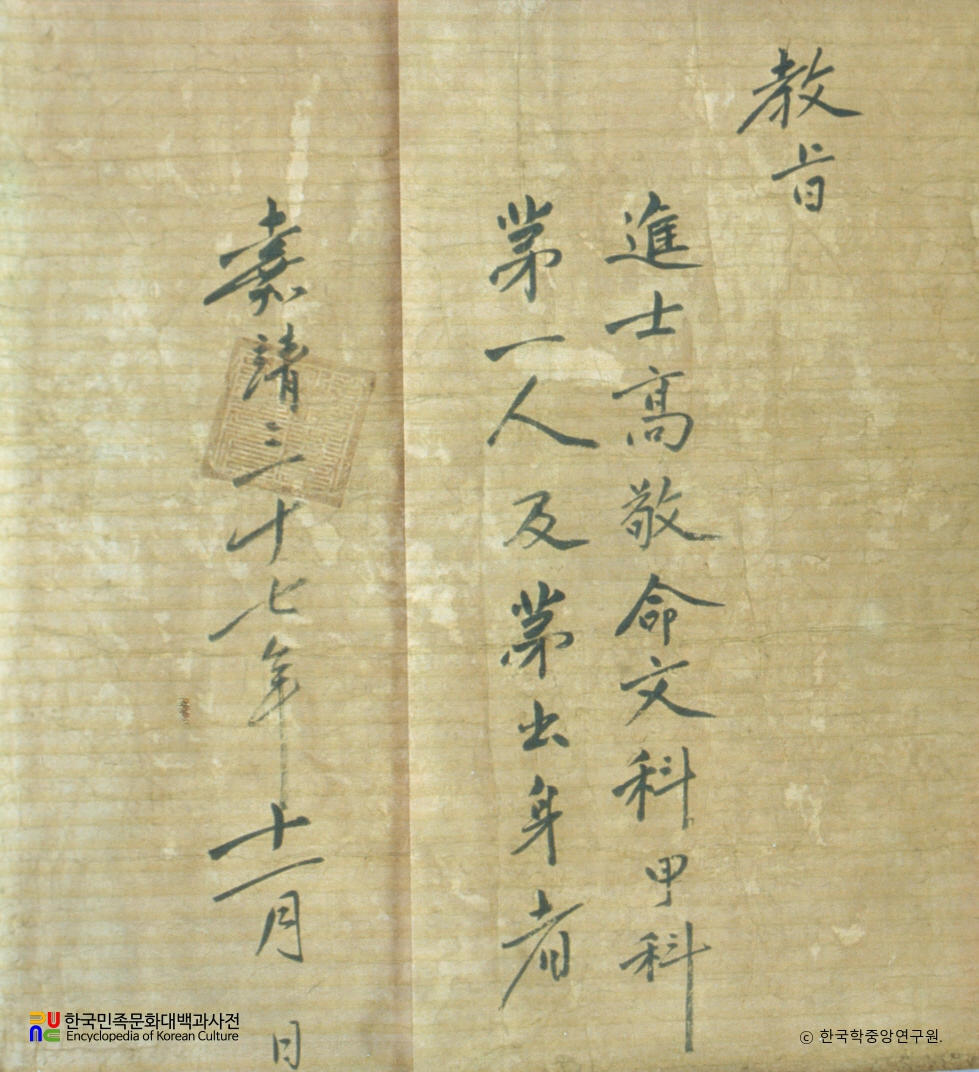 教旨
進士高敬命文科甲科
第一人及第出身者
嘉靖三十七年十一月 日
한국민족문화대백과사전
Encyclopedia of Korean Culture
ⓒ 한국학중앙연구원.